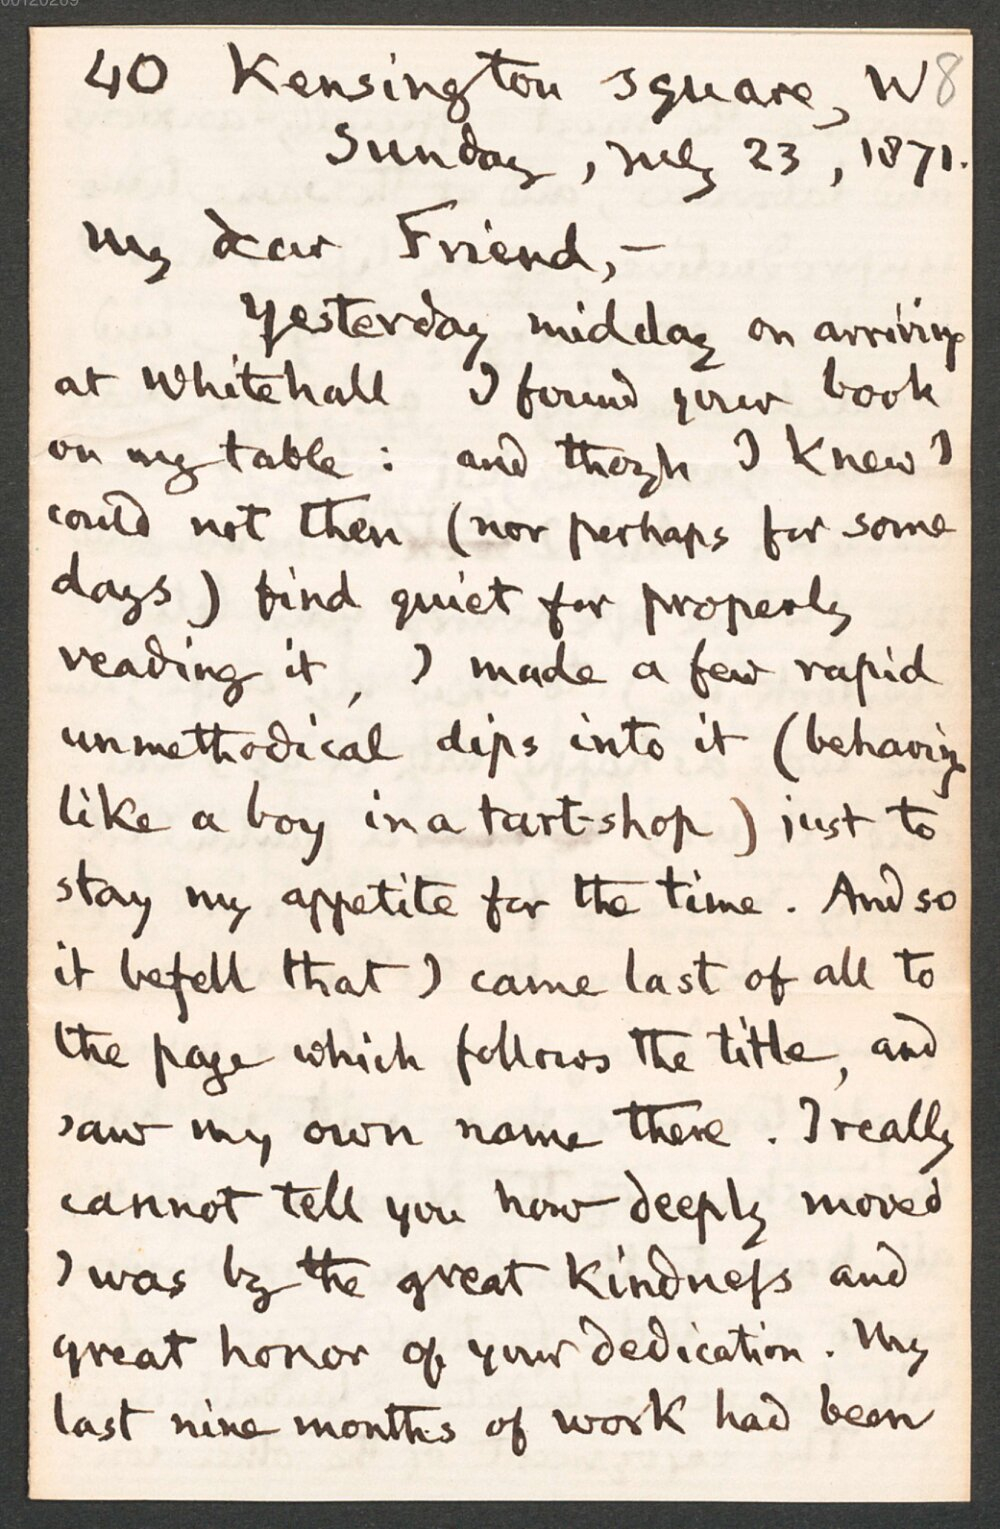 00120209
40 Kensington Square, W 8
Sunday, July 23, 1871.
My dear Friend, —
Yesterday midday on arriving
at Whitehall I found your book
on my table : and though I knew I
could not then (nor perhaps for some
days) find quiet for properly
reading it, I made a few rapid
unmethodical dips into it (behaving
like a boy in a tart-shop) just to
stay my appetite for the time. And so
it befell that I came last of all to
the page which follows the title, and
saw my own name there. I really
cannot tell you how deeply moved
I was by the great kindness and
great honor of your dedication. My
last nine months of work had been